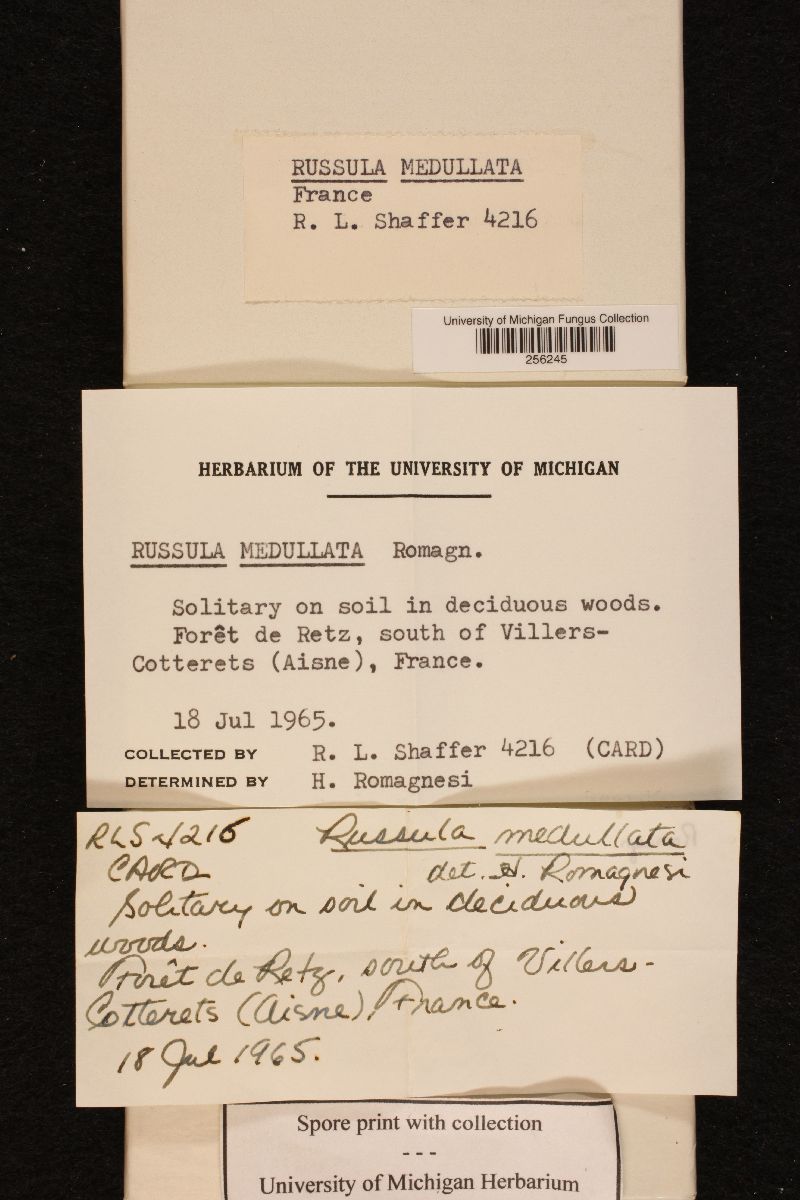 RUSSULA MEDULLATA
France
R. L. Shaffer 4216
University of Michigan Fungus Collection
256245
HERBARIUM OF THE UNIVERSITY OF MICHIGAN
RUSSULA MEDULLATA Romagn.
Solitary on soil in deciduous woods.
Forêt de Retz, south of Villers-
Cotterets (Aisne), France.
18 Jul 1965.
COLLECTED BY R. L. Shaffer 4216 (CARD)
DETERMINED BY H. Romagnesi
RLS 4216 Russula medullata
CARD det. H. Romagnesi
Solitary on soil in deciduous
woods.
Forêt de Retz, south of Villers-
Cotterets (Aisne), France.
18 Jul 1965.
Spore print with collection
- - -
University of Michigan Herbarium